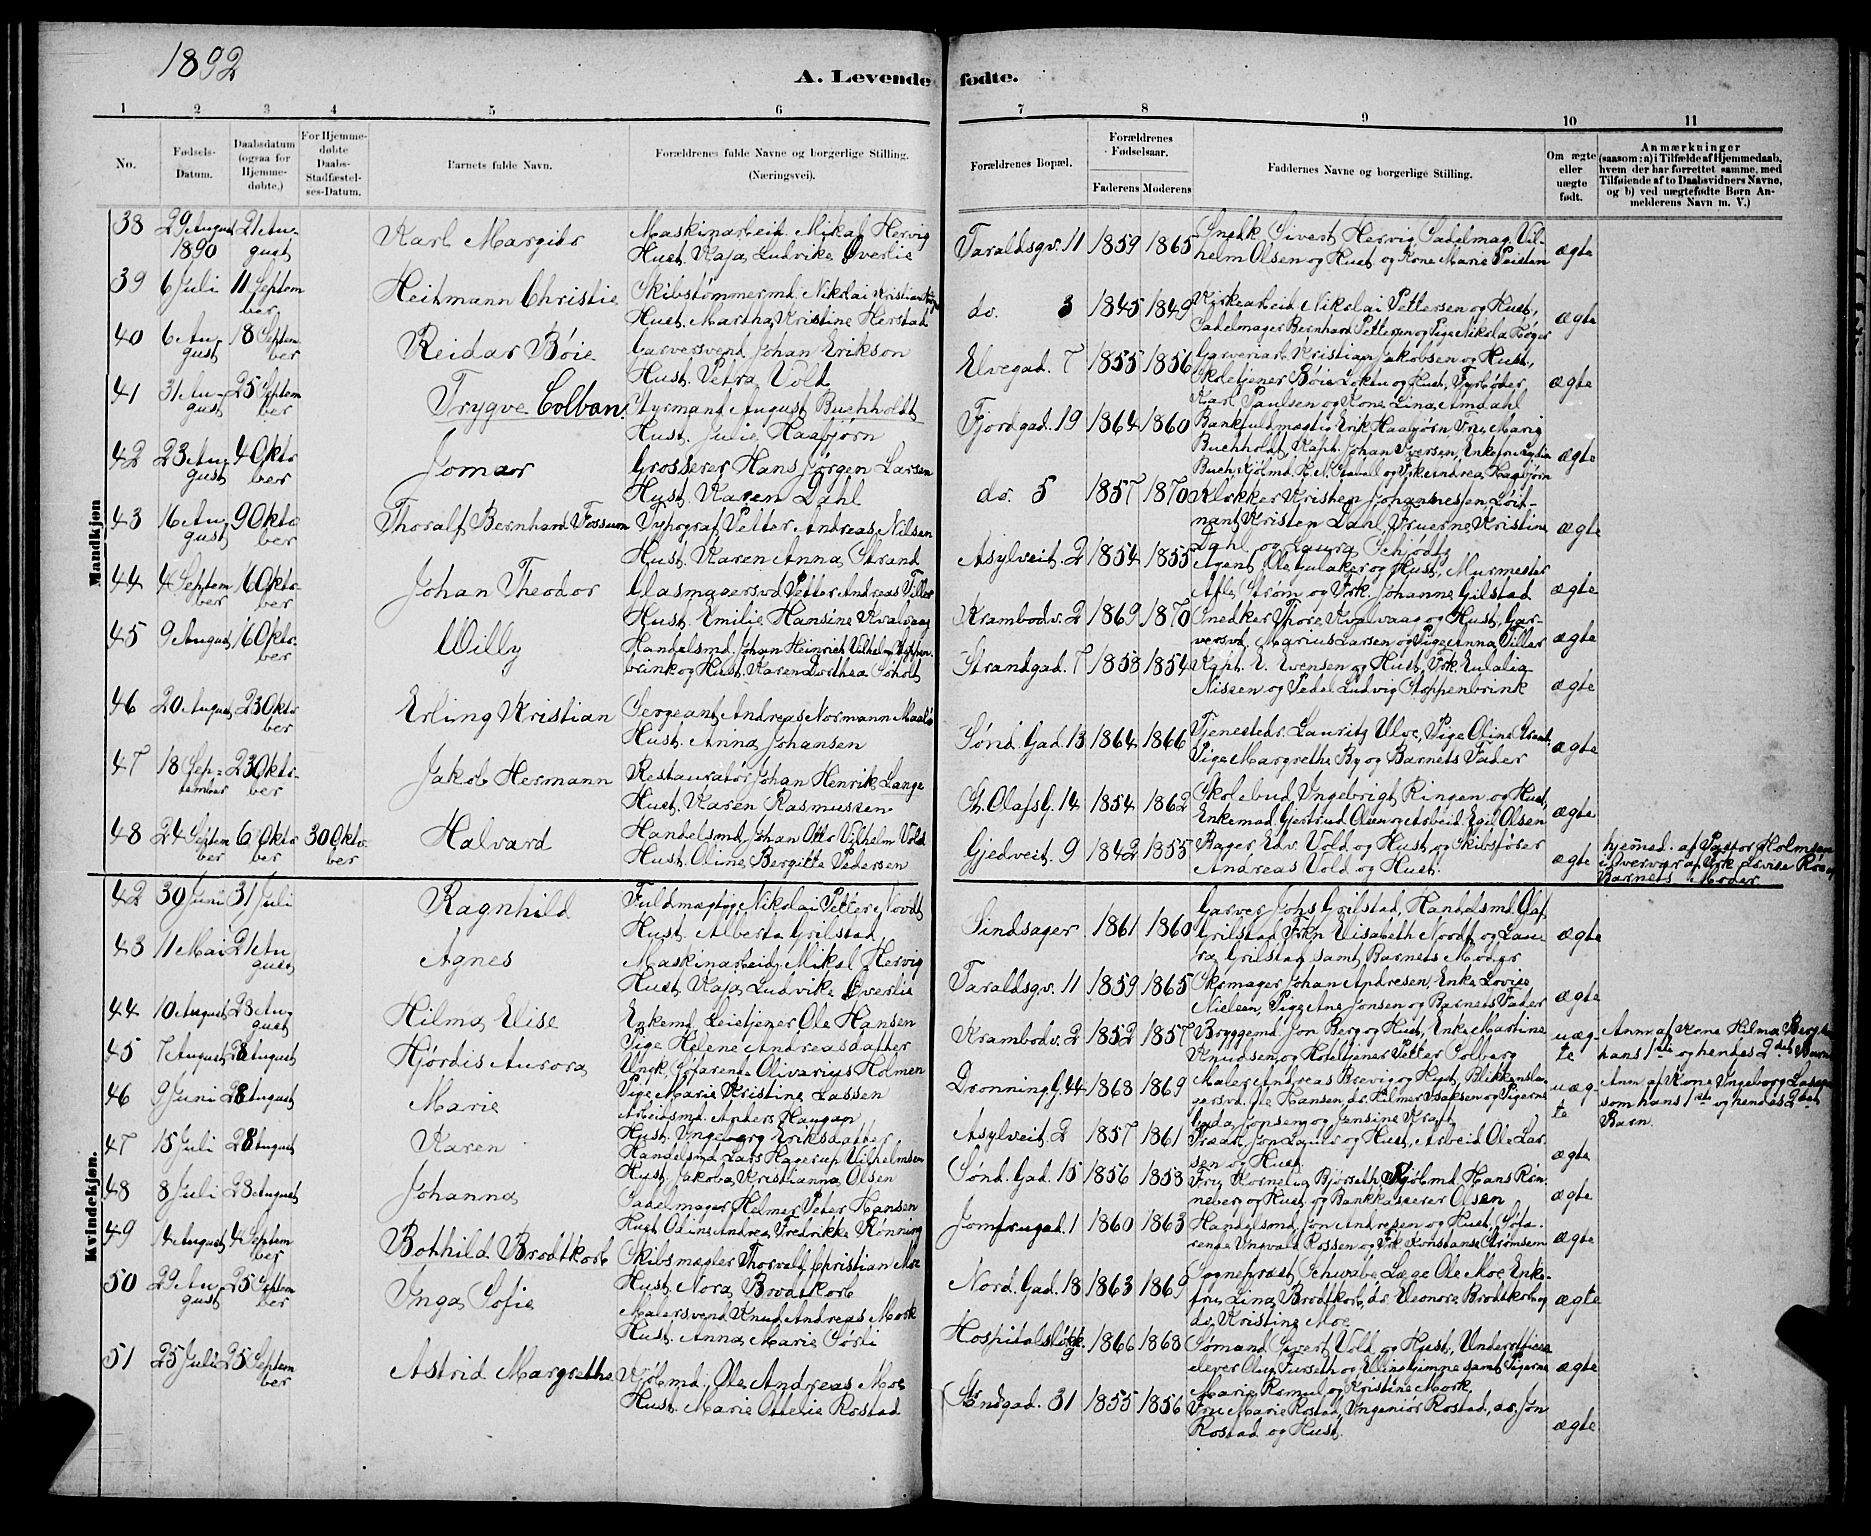 1892
A. Levende fødte.
1 2 3 4 5 6 7 8 9 10 11
No.
Fødsels-Datum.
Daabsdatum (ogsaa for Hjemme-døbte.)
For Hjemme-døbte Daabs-Stadfæstel-ses-Datum.
Barnets fulde Navn.
Forældrenes fulde Navne og borgerlige Stilling.
(Næringsvei).
Forældrenes Bopæl.
Forældrenes Fødselsaar.
Faderens Moderens
Faddernes Navne og borgerlige Stilling.
Om ægte eller uægte født.
Anmærkninger
(saasom: a) i Tilfælde af Hjemmedaab,
hvem der har forrettet samme, med
Tilføiende af to Daabsvidners Navne,
og b) ved uægtefødte Børn An-
melderens Navn m. V.)
Mandkjøn
38 29 August 1890 21 August Karl Margido
Maskinarbeid. Mikal Hervig
Hust. Kaja Ludvike Øverlie
Taraldsgv. 11 1859 1865
Snedk. Sivert Hervig, Sadelmag. Vil-
helm Olsen og Hust. og Kone Marie
ægte
39 6 Juli 11 September Heitmann Christie
Skibstømmermd. Nikolai Kristian
Hust. Martha Kristine Herstad
do. 3 1845 1849
Nikolai Pettersen og Hust.,
Sadelmager Bernhard Pettersen og Pige Nikola
ægte
40 6 August 18 September Reidar Bøie
Garversvend Johan Erikson
Hust. Petra Vold
Elvegad. 7 1855 1856
Garverarb. Kristian Jakobsen og Hust.,
Skoletjener Bøie og Hust, Fyrbøder,
Karl Paulsen og Kone Lina Amdahl
ægte
41 31 August 25 September Trygve Colban
Styrmand August Buchholdt
Hust. Julie Haabjørn
Fjordgad. 19 1864 1860
Erik Haabjørn, Fru Marie
Buchholdt, Kapt. Johan Iversen,
ægte
42 23 August 4 Oktober Jomar
Grosserer Hans Jørgen Larsen
Hust. Karen Dahl
do. 5 1857 1870
Klokker Kristen Johannesen, Loit-
nant Kristen Dahl, Fruerne Kristine
Dahl og Laura Schjødtz
ægte
43 16 August 9 Oktober Thoralf Bernhard Fossum
Typograf Petter Andreas Nilsen
Hust. Karen Anna Strand
Asylveit. 2 1854 1855
Agent Ole Gulaker og Hust, Murmester
Strøm og Frk. Johanne Gilstad
ægte
44 4 September 16 Oktober Johan Theodor
Glasmagersvd Petter Andreas Tiller
Hust. Emilie Hansine Kvalvaag
Krambodv. 2 1869 1870
Snedker Thore Kvalvaag og Hust, Gar-
versvd. Marius Larsen og Pige Anna Tiller
ægte
45 9 August 16 Oktober Willy
Handelsmd. Johan Heinrich Vilhelm Stoppen-
brink og Hust. Karen Dorthea Søholt
Strandgad. 7 1858 1854
Kapt. E. Evensen og Hust, Frk. Eulalia
Nissen og Pedel Ludvig Stoppenbrink
ægte
46 20 August 23 Oktober Erling Kristian
Sergeant Andreas Normann Maalø
Hust. Anna Johansen
Sønd. Gad. 13 1864 1866
Tjenestedr. Lauritz Ulve, Pige Oline
Pige Margrethe By og Barnets Fader
ægte
47 18 September 23 Oktober Jakob Hermann
Restauratør Johan Henrik Lange
Hust. Karen Rasmussen
St. Olafsg. 14 1854 1862
Skolebud Ingebrigt Ringen og Hust,
Enkemad. Gjertrud Olsen og Arbeid. Egil Olsen
ægte
48 24 September 6 Oktober 30 Oktober Halvard
Handelsmd. Johan Otto Vilhelm Vold
Hust. Oline Bergitte Pedersen
Gjedveit. 9 1842 1855
Bager Edv. Vold og Hust, og Skibsfører
Andreas Vold og Hust.
ægte
hjemmed. af Pastor Holmsen
i Overvær af Frk. Lovise
Barnets Moder
Kvindekjøn.
42 30 Juni 31 Juli Ragnhild
Fuldmægtig Nikolai Petter Nordt
Hust. Alberta Grilstad
Sindsager 1861 1860
Garver Johs Grilstad, Handelsmd Olaf
Grilstad Frkn Elisabeth Nordt og Lau-
ra Grilstad samt Barnets Moder
ægte
43 11 Mai 21 August Agnes
Maskinarbeid. Mikal Hervig
Hust. Kaja Ludvike Øverlie
Taraldsgv. 11 1859 1865
Skomager Johan Andresen, Enke Lovise
Nielsen, Pige Ane Jonsen og Barnets Fader
ægte
44 10 August 28 August Hilma Elise
Enkemd. Leietjener Ole Hansen
Pige Helene Andreasdatter
Krambodv. 2 1852 1857
Bryggemd. Jon Berg og Hust, Enke Martine
Knudsen og Hoteltjener Petter Solberg
uægte
Anm. af Kone Hilma Berg
hans 1ste og hendes 2det Barn
45 7 August 28 August Hjørdis Aurora
Ungk. Søfarende Olivarius Holmen
Pige Marie Kristine Lassen
Dronning.g. 44 1868 1869
Maler Andreas Brevig og Hust, Blikkensla-
gersvd. Ole Hansen, do. Hilmer Isaksen og Pigerne
Jonsen og Jensine Kraft
uægte
Anm. af Kone Ingeborg Lassen
som hans 1ste og hendes 2det
Barn.
46 9 Juni 28 August Marie
Arbeidsmd. Anders Haugan
Hust. Ingeborg Eriksdatter
Asylveit. 2 1857 1861
Jon og Hust, Arbeid. Ole Lar-
sen og Hust
ægte
47 15 Juli 28 August Karen
Handelsmd Lars Hagerup Vilhelmsen
Hust. Jakoba Kristianna Olsen
Sønd. Gad. 15 1856 1858
Fru Kornelia Bjørseth, Kjøbmd. Hans Røn-
neberg og Hust, og Bankkasserer Olsen
ægte
48 8 Juli 28 August Johanna
Sadelmager Helmer Peter Hansen
Hust. Odine Andrea Fredrikke Rønning
Jomfrugad. 1 1860 1863
Handelsmd Jon Andresen og Hust, Søfa-
rende Ingvald Rossen og Frk. Konstanse Strømsem
ægte
49 14 August 4 September Bothild Brodtkorb
Skibsmægler Thorvald Christian Moe
Hust. Nora Brodtkorb
Nord. Gad. 18 1863 1869
Sogneprest Schwabe, Læge Ole Moe, Enke-
fru Lina Brodtkorb, do. Eleonore Brodtkorb og
do. Kristine Moe
ægte
50 29 August 25 September Inga Sofie
Malersvend Knud Andreas Mork
Hust. Anna Marie Sørli
Hospitalsløkk. 1866 1868
Sømand Sivert Vold og Hust, Underofficers-
elever Oluf Furseth og Elling Gimne samt Pigerne
Marie Romul og Kristine Mork
ægte
51 25 Juli 25 September Astrid Margrethe
Kjøbmd. Ole Andreas Moe
Hust. Marie Ottelie Rostad
Strandgad. 31 1855 1856
Fru Marie Rostad, Ingeniør Rostad, do. Jon
Rostad og Hust.
ægte